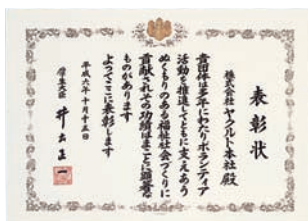 表彰状
株式会社ヤクルト本社殿
貴団体は多年にわたりボランティア
活動を推進してともに支えあう
ぬくもりのある福祉社会づくりに
貢献されその功績はまことに顕著な
ものがあります
よってここに表彰します
平成六年十月十五日
厚生大臣 井出正一